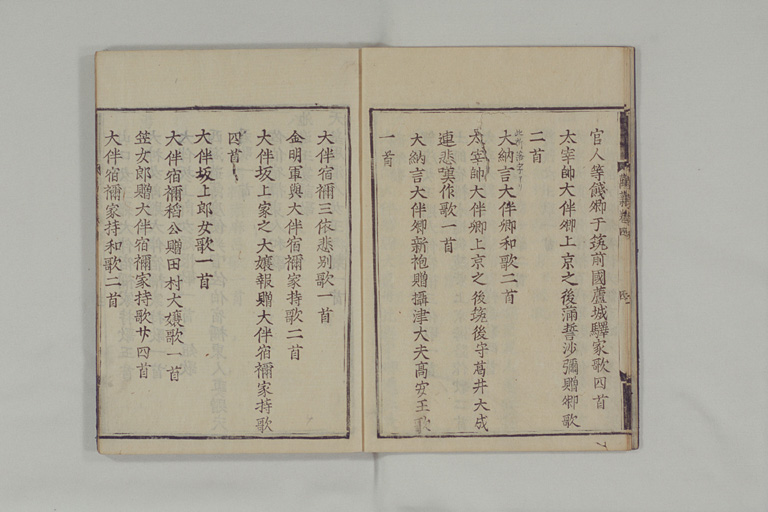 官人等餞卿于筑前國蘆城驛家歌四首
太宰帥大伴卿上京之後滿誓沙彌贈卿歌
二首
大納言大伴卿和歌二首
太宰帥大伴卿上京之後筑後守葛井大成
連悲嘆作歌一首
大納言大伴卿新袍贈攝津大夫高安王歌
一首
大伴宿禰三依悲別歌一首
金明軍與大伴宿禰家持歌二首
大伴坂上家之大嬢報贈大伴宿禰家持歌
四首
大伴坂上郎女歌一首
大伴宿禰稻公贈田村大嬢歌一首
笠女郎贈大伴宿禰家持歌廿四首
大伴宿禰家持和歌二首